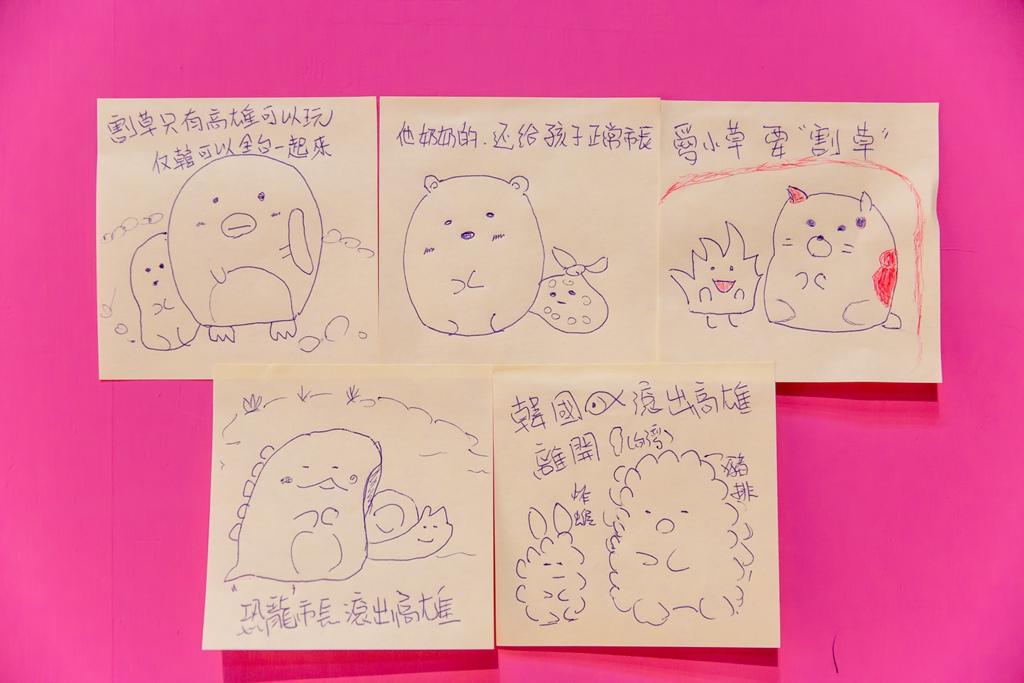 割草只有高雄可以玩
仅韓可以全台一起來
他奶奶的.还给孩子正常市長
愛小草 要"割草"
"恐龍"市長滾出高雄
韓國 滾出高雄
離開(台灣)
炸蝦
豬排